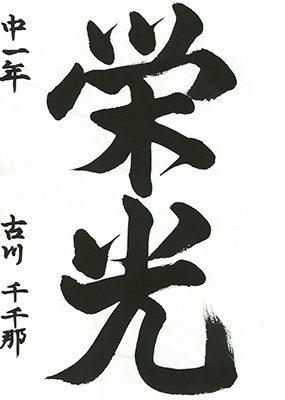 栄光
中一年
古川 千千那